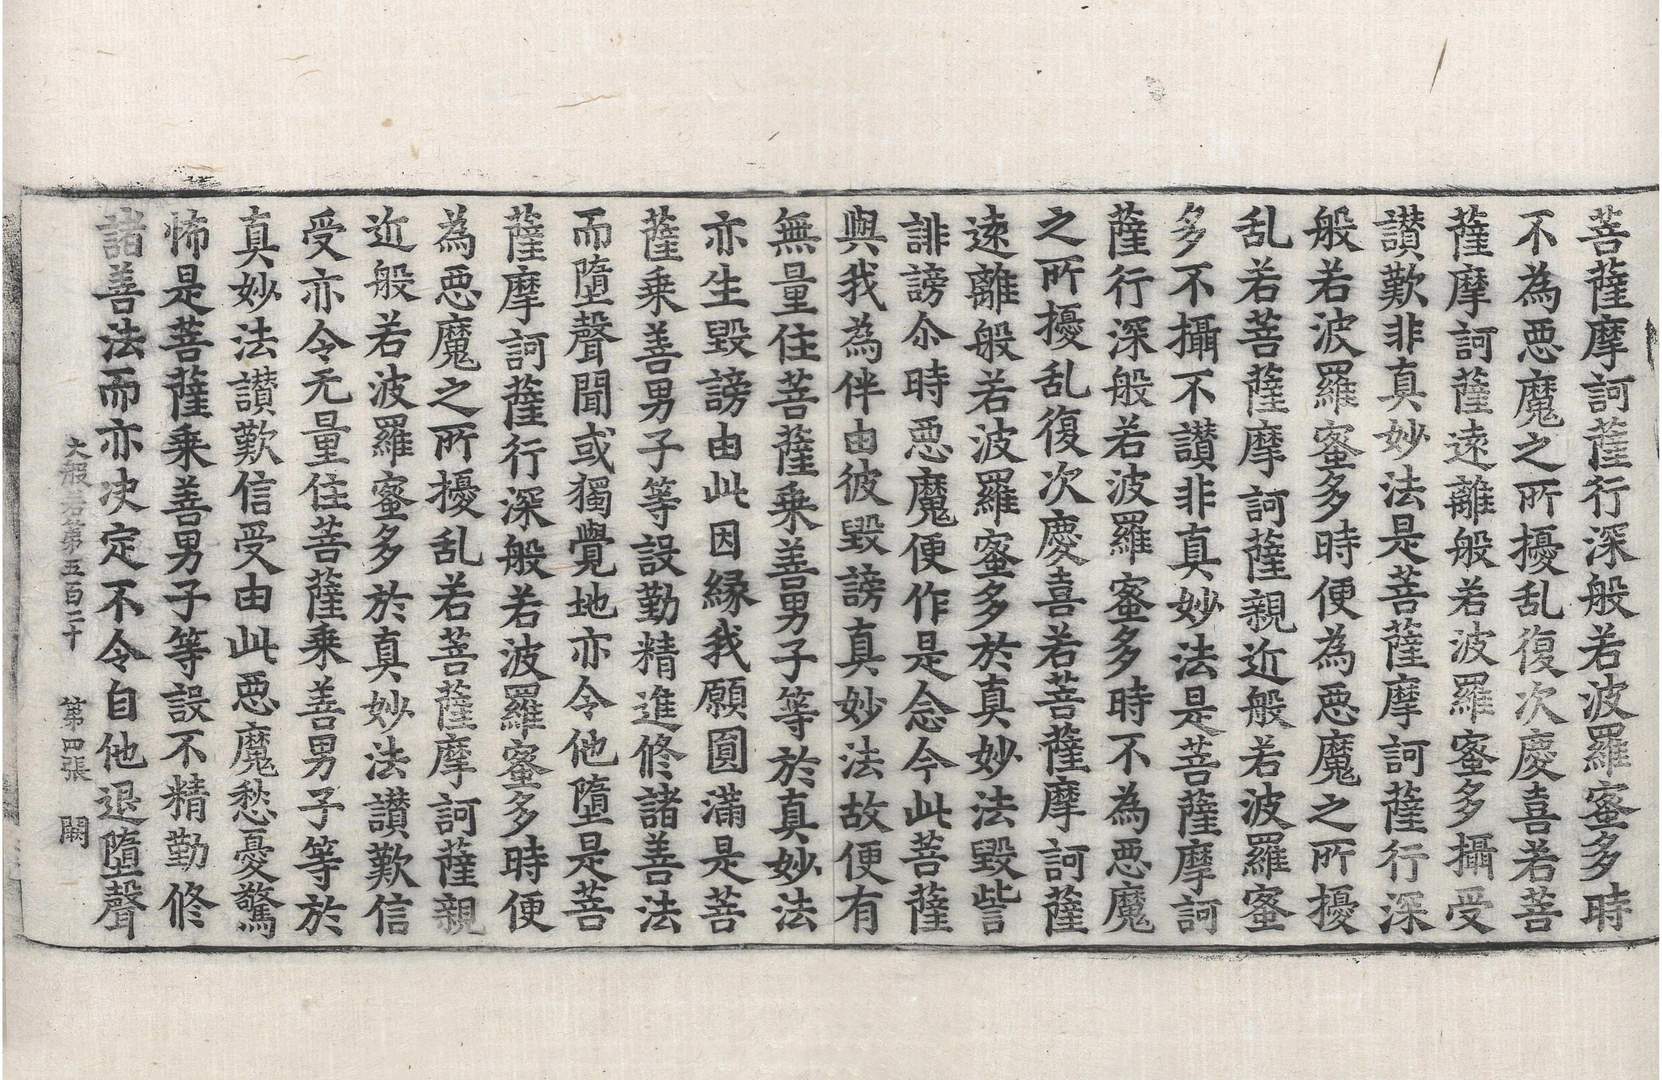 菩薩摩訶薩行深般若波羅蜜多時
不為惡魔之所擾乱復次慶喜若菩
薩摩訶薩遠離般若波羅蜜多攝受
讃歎非真妙法是菩薩摩訶薩行深
般若波羅蜜多時便為惡魔之所擾
乱若菩薩摩訶薩親近般若波羅蜜
多不攝不讃非真妙法是菩薩摩訶
薩行深般若波羅蜜多時不為惡魔
之所擾乱復次慶喜若菩薩摩訶薩
遠離般若波羅蜜多於真妙法毀呰
誹謗尒時惡魔便作是念今此菩薩
與我為伴由彼毀謗真妙法故便有
無量住菩薩乗善男子等於真妙法
亦生毀謗由此因縁我願圓滿是菩
薩乗善男子等設勤精進修諸善法
而墮聲聞或獨覺地亦令他墮是菩
薩摩訶薩行深般若波羅蜜多時便
為惡魔之所擾乱若菩薩摩訶薩親
近般若波羅蜜多於真妙法讃歎信
受亦令无量住菩薩乗善男子等於
真妙法讃歎信受由此惡魔愁憂驚
怖是菩薩乗善男子等設不精勤修
諸善法而亦决定不令自他退墮聲
大般若第五百二十 第四張 闕